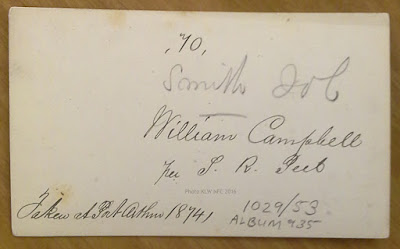 ,70,
Smith Job
William Campbell
per S. R. Peeb
Photo KLW NFC 2014
Taken at Port Arthur 1874,
1029/53
ALBUM 935